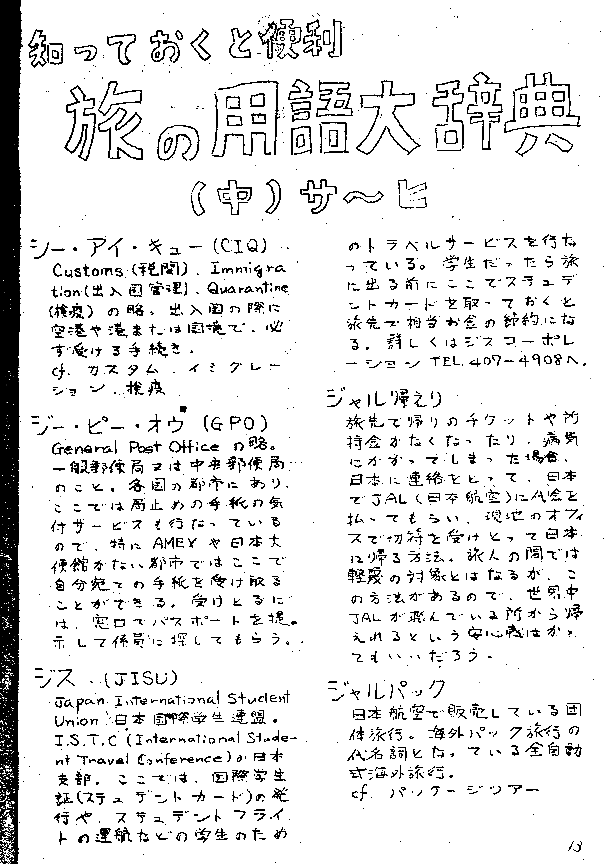 知っておくと便利
旅の用語大辞典
(中) サ〜ヒ
シー・アイ・キュー (CIQ)
Customs (税関)、Immigra
tion(出入国管理)、Quarantine
(検疫) の略。出入国の際に
空港や港または国境で、必
ず受ける手続き。
cf. カスタム、イミグレー
ション、検疫
ジー・ピー・オウ (GPO)
General Post Office の略。
一般郵便局又は中央郵便局
のこと。各国の都市にあり、
ここでは局止めの手紙の気
付サービスも行なっている
ので、特に AMEX や日本大
使館がない都市ではここで
自分宛ての手紙を受け取る
ことができる。受けとるに
は、窓口でパスポートを提
示して係員に探してもらう。
ジス (JISU)
Japan International Student
Union 日本国際学生連盟。
I.S.T.C (International Stude-
nt Travel Conference)の日本
支部。ここでは、国際学生
証(スチューデントカード)の発
行や、スチューデントフライ
トの運航などの学生のため
のトラベルサービスを行な
っている。学生だったら旅
に出る前にここでスチュデ
ントカードを取っておくと
旅先で相当お金の節約にな
る。詳しくはジスコーポレ
ーション TEL 407-4908へ。
ジャル帰えり
旅先で帰りのチケットや所
持金がなくなったり、病気
にかかってしまった場合、
日本に連絡をとって、日本
でJAL (日本航空)に代金を
払ってもらい、現地のオフィ
スで切符を受けとって日本
に帰る方法。旅人の間では
軽蔑の対象とはなるが、こ
の方法があるので、世界中
JALが飛んでいる所から帰
えれるという安心感はかっ
てもいいだろう。
ジャルパック
日本航空で販売している団
体旅行。海外パック旅行の
代名詞となっている全自動
式海外旅行。
cf. パッケージツアー
13